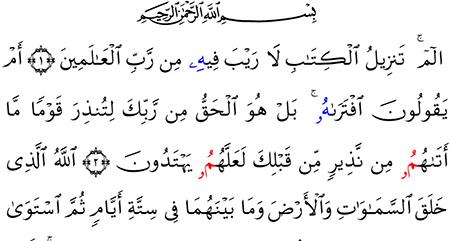 بِسْمِ ٱللَّهِ ٱلرَّحْمَٰنِ ٱلرَّحِيمِ
الٓمٓ ۚ تَنزِيلُ ٱلْكِتَٰبِ لَا رَيْبَ فِيهِۦ مِن رَّبِّ ٱلْعَٰلَمِينَ ﴿١﴾ أَمْ
يَقُولُونَ ٱفْتَرَىٰهُۥ ۚ بَلْ هُوَ ٱلْحَقُّ مِن رَّبِّكَ لِتُنذِرَ قَوْمًا مَّا
أَتَىٰهُمُۥ مِن نَّذِيرٍ مِّن قَبْلِكَ لَعَلَّهُمُۥ يَهْتَدُونَ ﴿٢﴾ ٱللَّهُ ٱلَّذِى
خَلَقَ ٱلسَّمَٰوَٰتِ وَٱلْأَرْضَ وَمَا بَيْنَهُمَا فِى سِتَّةِ أَيَّامٍ ثُمَّ ٱسْتَوَىٰ